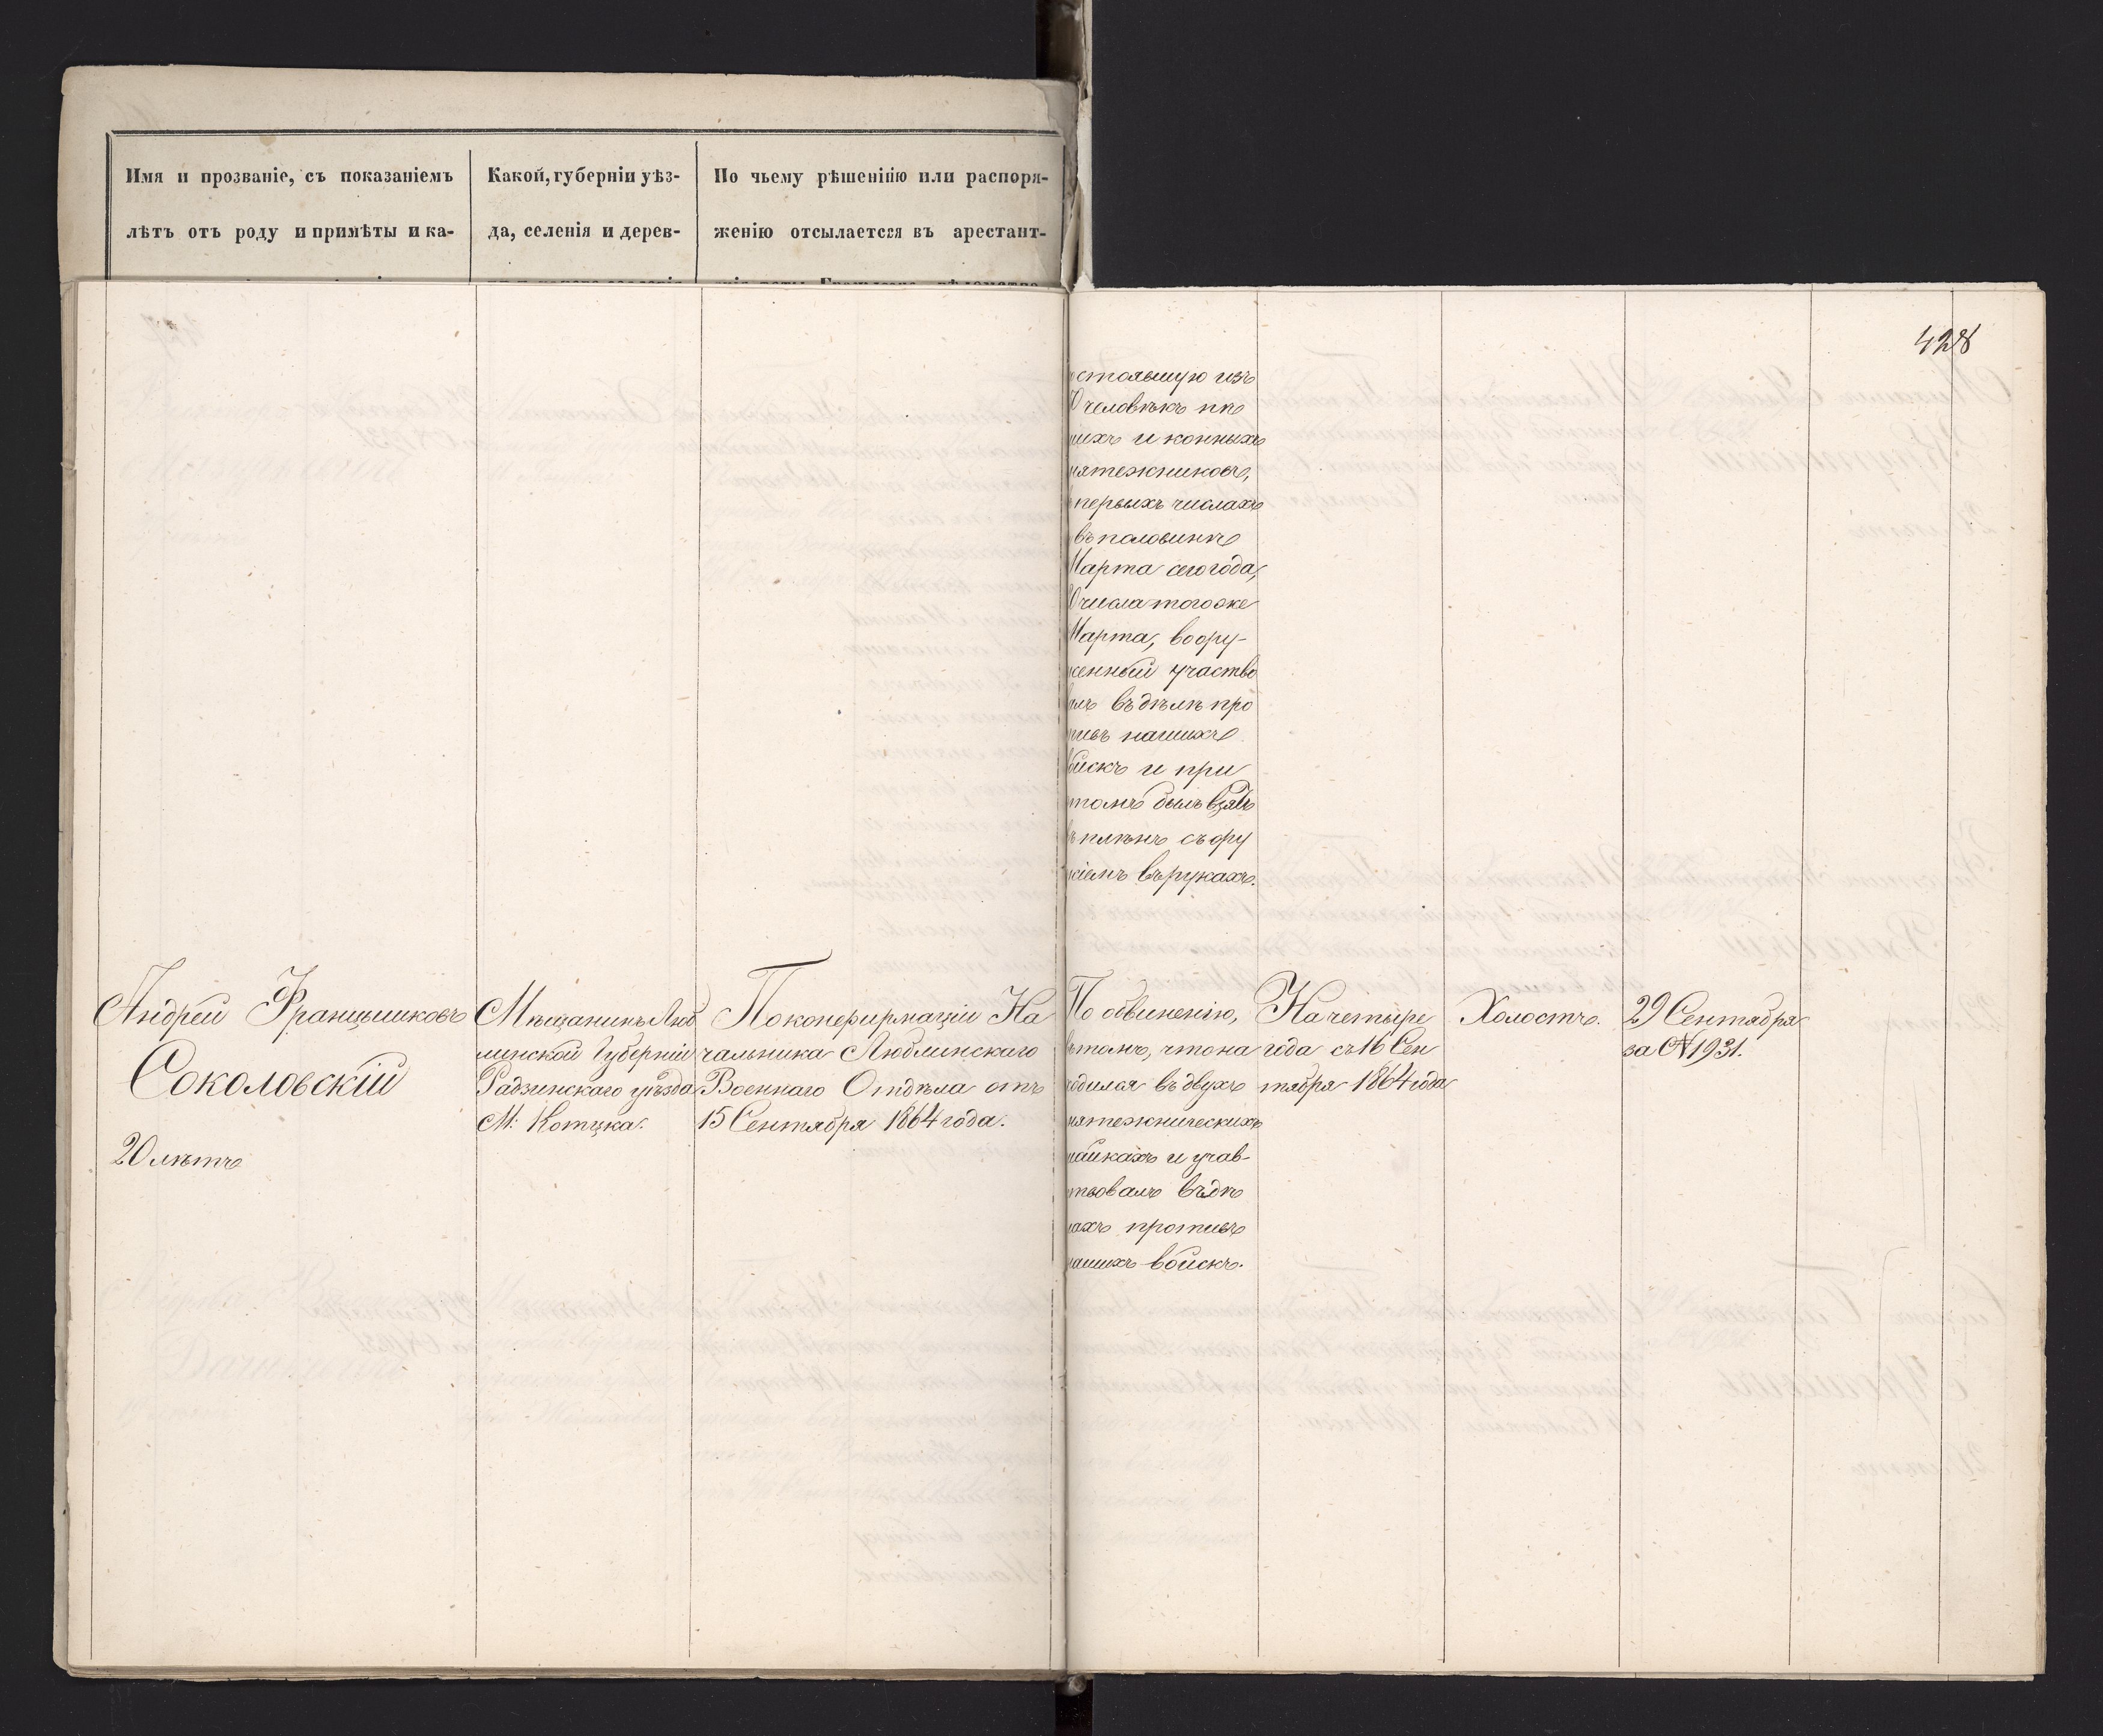 Имя и прозваніе, съ показаніемъ
лѣтъ отъ роду и примѣты и ка-
Какой, губерніи уѣз-
да, селенія и дерев-
По чьему рѣшенійю или распоря-
женію отсылается въ арестант-
428
стоявшую изъ
0 человѣкъ пѣ
шихъ и конныхъ
мятежниковъ,
первыхъ числахъ
въ половинѣ
Марта сего года,
0 числа того же
Марта, воору-
женный участво
алъ въ дѣлѣ про
тивъ нашихъ
войскъ и при
томъ былъ взятъ
въ плѣнъ съ ору
жіемъ въ рукахъ.
Андрей Францишковъ
Соколовскій
20 лѣтъ
Мѣщанинъ Люб
линской Губерніи
Радзинскаго уѣзда
М. Котцка.
По конфирмаціи На
чальника Люблинскаго
Военнаго Отдѣла отъ
15 Сентября 1864 года.
По обвиненію,
въ томъ, что на
ходился въ двухъ
мятежническихъ
шайкахъ и учав-
твовалъ въ дѣ
лахъ противъ
нашихъ войскъ.
На четыре
года съ 16 Сен
тября 1864 года
Холостъ.
29 Сентября
за № 1931.